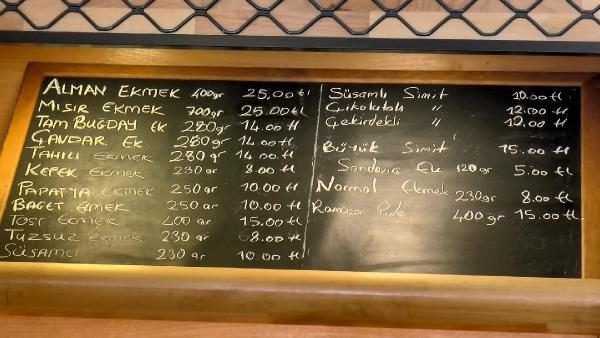 ALMAN EKMEK 400gr 25,00 tl
MISIR EKMEK 700gr 25.00 tl
TAM BUĞDAY EK 280gr 14.00 tl
ÇAVDAR EK 280gr 14.00 tl
TAHILI EKMEK 280gr 14.00 tl
KEPEK EKMEK 230 gr 8.00 tl
PAPATYA EKMEK 250 gr 10.00 tl
BAGET EKMEK 250 gr 10.00 tl
TOST EKMEK 400 gr 15.00 tl
TUZSUZ EKMEK 230 gr 8.00 tl
SÜSAMLI 230 gr 10.00 tl
Süsamlı Simit 10.00 tl
Çikolatalı " 12.00 tl
Çekirdekli " 12.00 tl
Büyük Simit 15.00 tl
Sandviç Ek 120gr 5.00 tl
Normal Ekmek 230gr 8.00 tl
Ramazan Pide 400 gr 15.00 tl